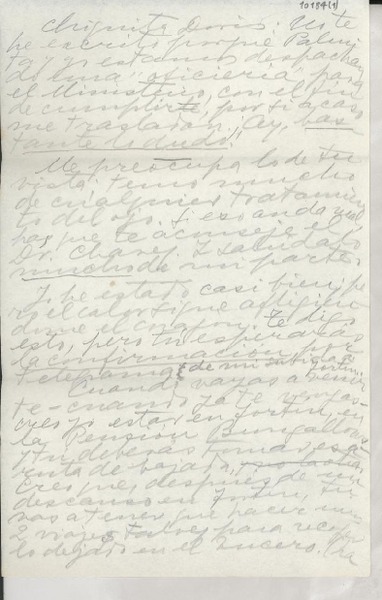 10184(1)
Chiquita Doris: No te
he escrito porque Palmi
ta y yo estamos despachan
do una oficiería, para
el Ministerio, con el fin
de cumplirte, por si acaso
me trasladan. ¡Ay, bas-
tante lo dudo!
Me preocupa lo de tu
vista; temo mucho
de cualquier tratamien
to del ojo. Si eso anda mal
hay que te aconseje el
Dr. Chavez. Y salúdalo
mucho de mi parte.
Yo he estado casi bien, pe
ro el calor sigue afligien
dome el corazón. Te digo
esto, pero tú esperarás
la confirmación por
telegrama de mi subida a Fortín.
Cuando vayas a venir
te - cuando ya te vengas -
creo yo estar en Fortín, en
la Pensión Bungallows
y tú deberás tomar esa
renta de bajada,
Creo que, después de un
descanso en Fortín, tú
vas a tener que hacer unos
2 viajes tal vez para reco
lo dejado en el Lucero. (La